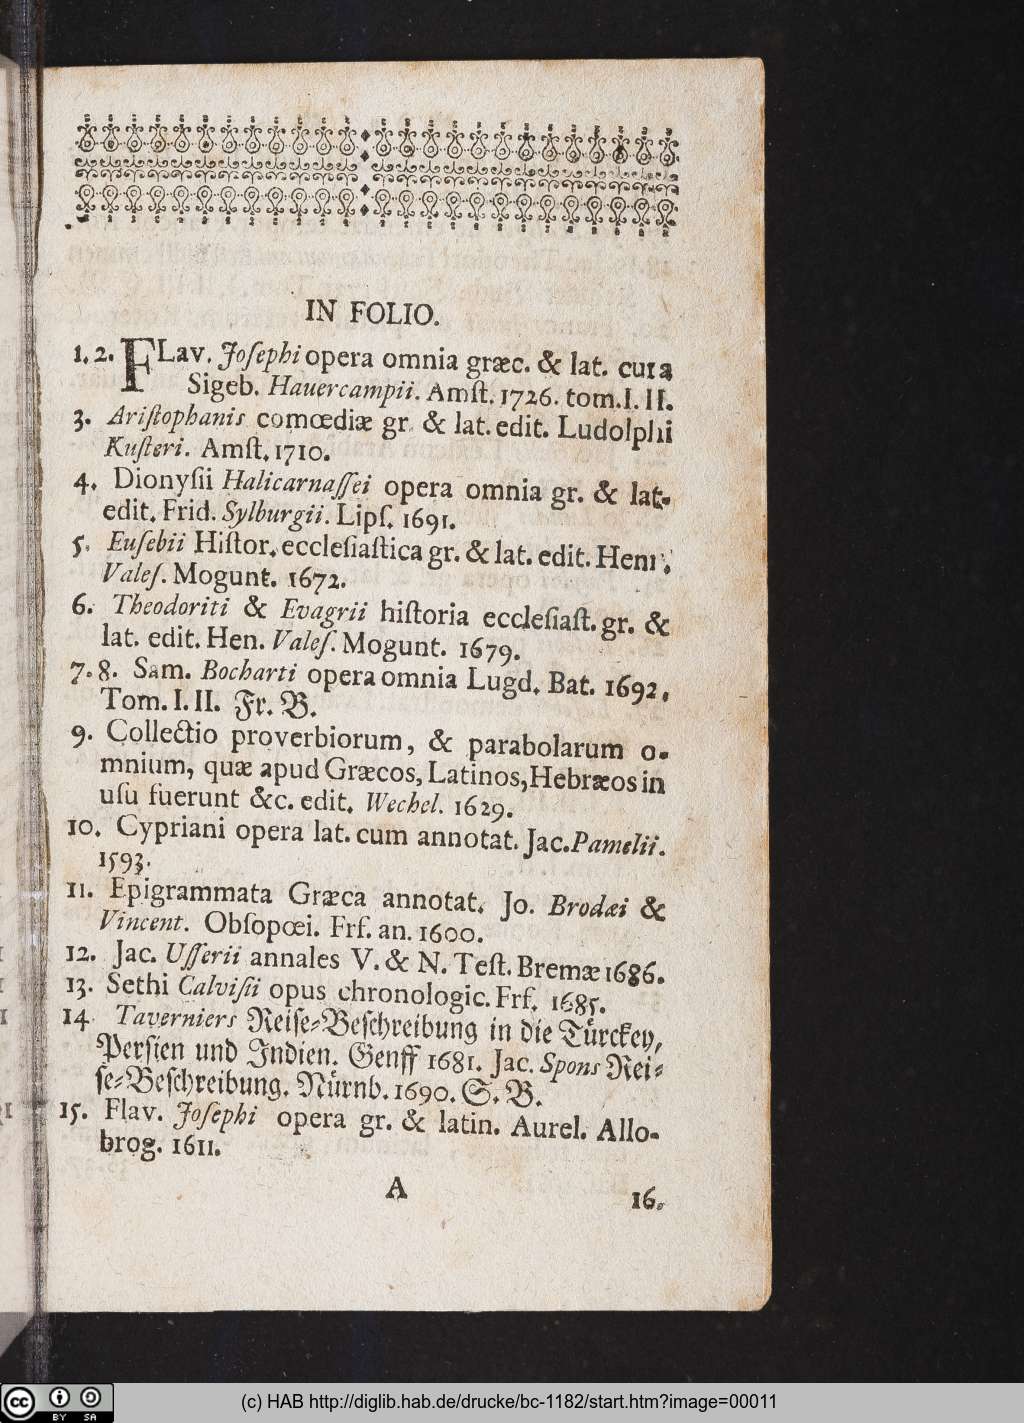 IN FOLIO.
1. 2. FLav. Joſephi opera omnia græc. & lat. cura
Sigeb. Hauercampii. Amſt. 1726. tom. I. II.
3. Ariſtophanis comœdiæ gr. & lat. edit. Ludolphi
Kuſteri. Amſt. 1710.
4. Dionyſii Halicarnaſſei opera omnia gr. & lat.
edit. Frid. Sylburgii. Lipſ. 1691.
5. Euſebii Hiſtor. eccleſiaſtica gr. & lat. edit. Henr.
Valeſ. Mogunt. 1672.
6. Theodoriti & Evagrii hiſtoria eccleſiaſt. gr. &
lat. edit. Hen. Valeſ. Mogunt. 1679.
7. 8. Sam. Bocharti opera omnia Lugd. Bat. 1692.
Tom. I. II. Fr. B.
9. Collectio proverbiorum, & parabolarum o-
mnium, quæ apud Græcos, Latinos, Hebræos in
uſu fuerunt &c. edit. Wechel. 1629.
10. Cypriani opera lat. cum annotat. Jac. Pamelii.
1593.
11. Epigrammata Græca annotat. Jo. Brodæi &
Vincent. Obſopœi. Frf. an. 1600.
12. Jac. Uſſerii annales V. & N. Teſt. Bremæ 1686.
13. Sethi Calviſii opus chronologic. Frf. 1685.
14 Taverniers Reiſe-Beſchreibung in die Türckey,
Perſien und Indien. Genff 1681. Jac. Spons Rei-
ſe-Beſchreibung. Nürnb. 1690. S. B.
15. Flav. Joſephi opera gr. & latin. Aurel. Allo-
brog. 1611.
A
16.
(c) HAB http://diglib.hab.de/drucke/bc-1182/start.htm?image=00011
cc BY SA